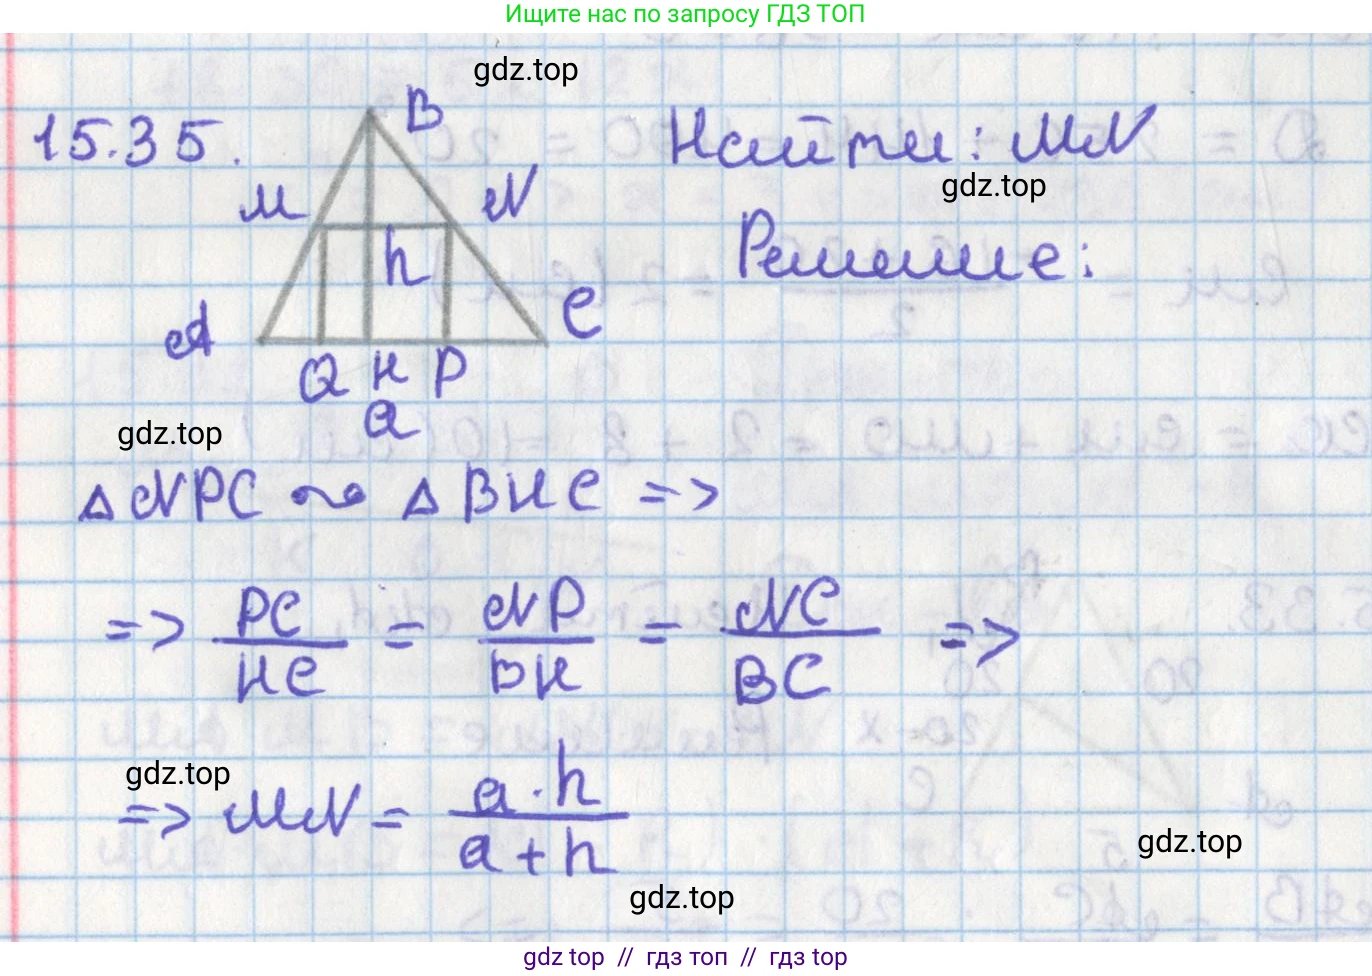 Ищите нас по запросу ГДЗ ТОП
gdz.top
15.35.
B
Найти: MN
M
N
gdz.top
Решение:
h
A
C
Q H P
a
gdz.top
△NPC ∾ △BHC =>
=> PC/HC = NP/BH = NC/BC =>
gdz.top
=> MN = a·h/a+h
gdz.top
gdz.top
gdz top // гдз топ // гдз top